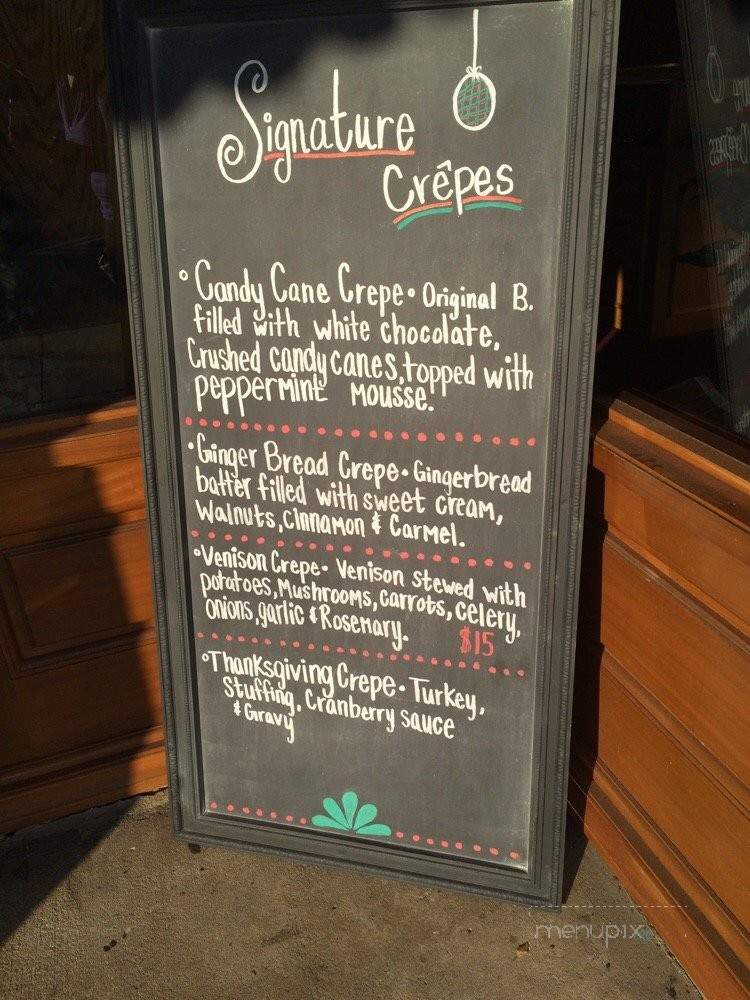 Signature
Crêpes
° Candy Cane Crepe • Original B.
filled with white chocolate,
Crushed candy canes, topped with
peppermint mousse.
• Ginger Bread Crepe • Gingerbread
batter filled with sweet cream,
Walnuts, Cinnamon & Carmel.
° Venison Crepe • Venison stewed with
potatoes, Mushrooms, carrots, celery,
onions, garlic & Rosemary. $15
° Thanksgiving Crepe • Turkey,
Stuffing, Cranberry sauce
& Gravy
menupix